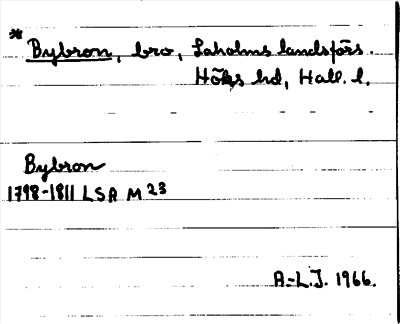 * Bybron, bro, Laholms landsförs.
Höks hd, Hall. l.
Bybron
1798-1811 LSA M 23
A.-L.J. 1966.